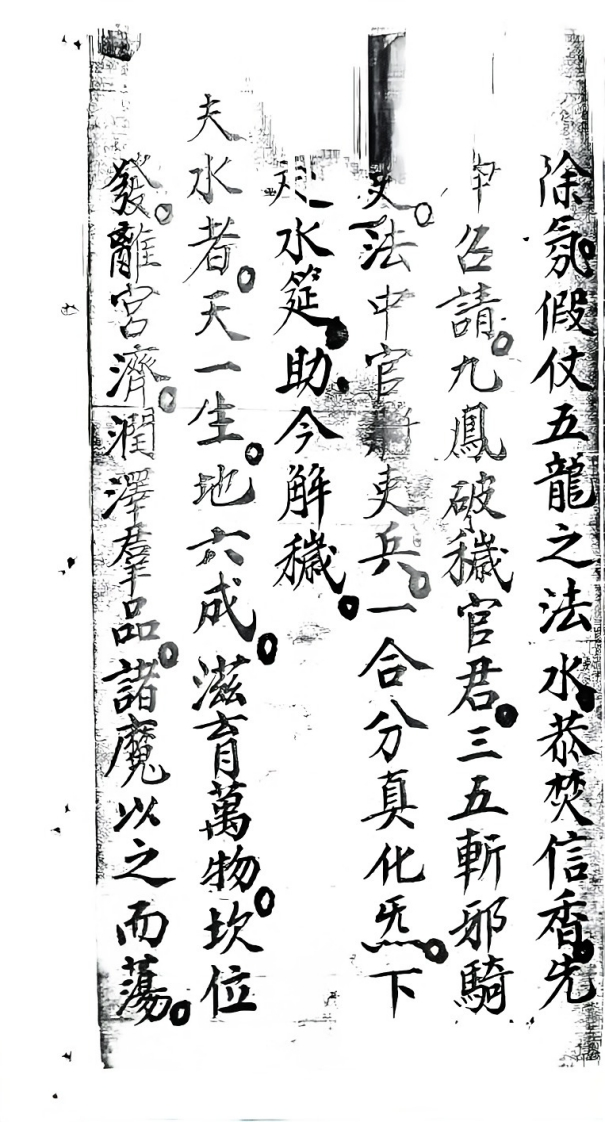 除氛假仗五龍之法水恭焚信香先
申召請九鳳破穢官君三五斬邪騎
吏法中官將吏兵一合分真化炁下
水筵助今解穢
夫水者天一生地六成滋育萬物坎位
發離宮濟潤澤羣品諸魔以之而蕩